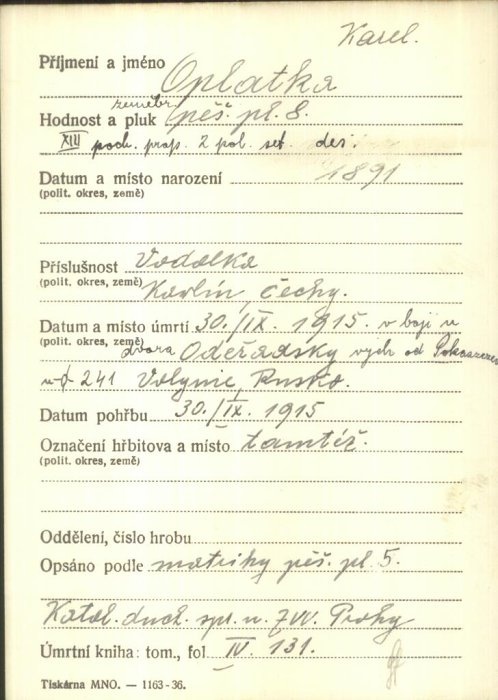 Karel.
Příjmení a jméno Oplatka
zeměbr.
Hodnost a pluk pěš. pl. 8.
XIII poch. prap. 2 pol. set. des.
Datum a místo narození 1891
(polit. okres, země)
Příslušnost Vodolka
(polit. okres, země) Karlín, Čechy.
Datum a místo úmrtí 30./IX. 1915. v boji u
(polit. okres, země) dvora Odeřadsky vých od
241 Volynie, Rusko.
Datum pohřbu 30./IX. 1915
Označení hřbitova a místo tamtéž.
(polit. okres, země)
Oddělení, číslo hrobu
Opsáno podle matriky pěš. pl. 5.
Katol. duch. spr. u ZVV. Prahy
Úmrtní kniha: tom., fol. IV. 131.
Tiskárna MNO. — 1163-36.